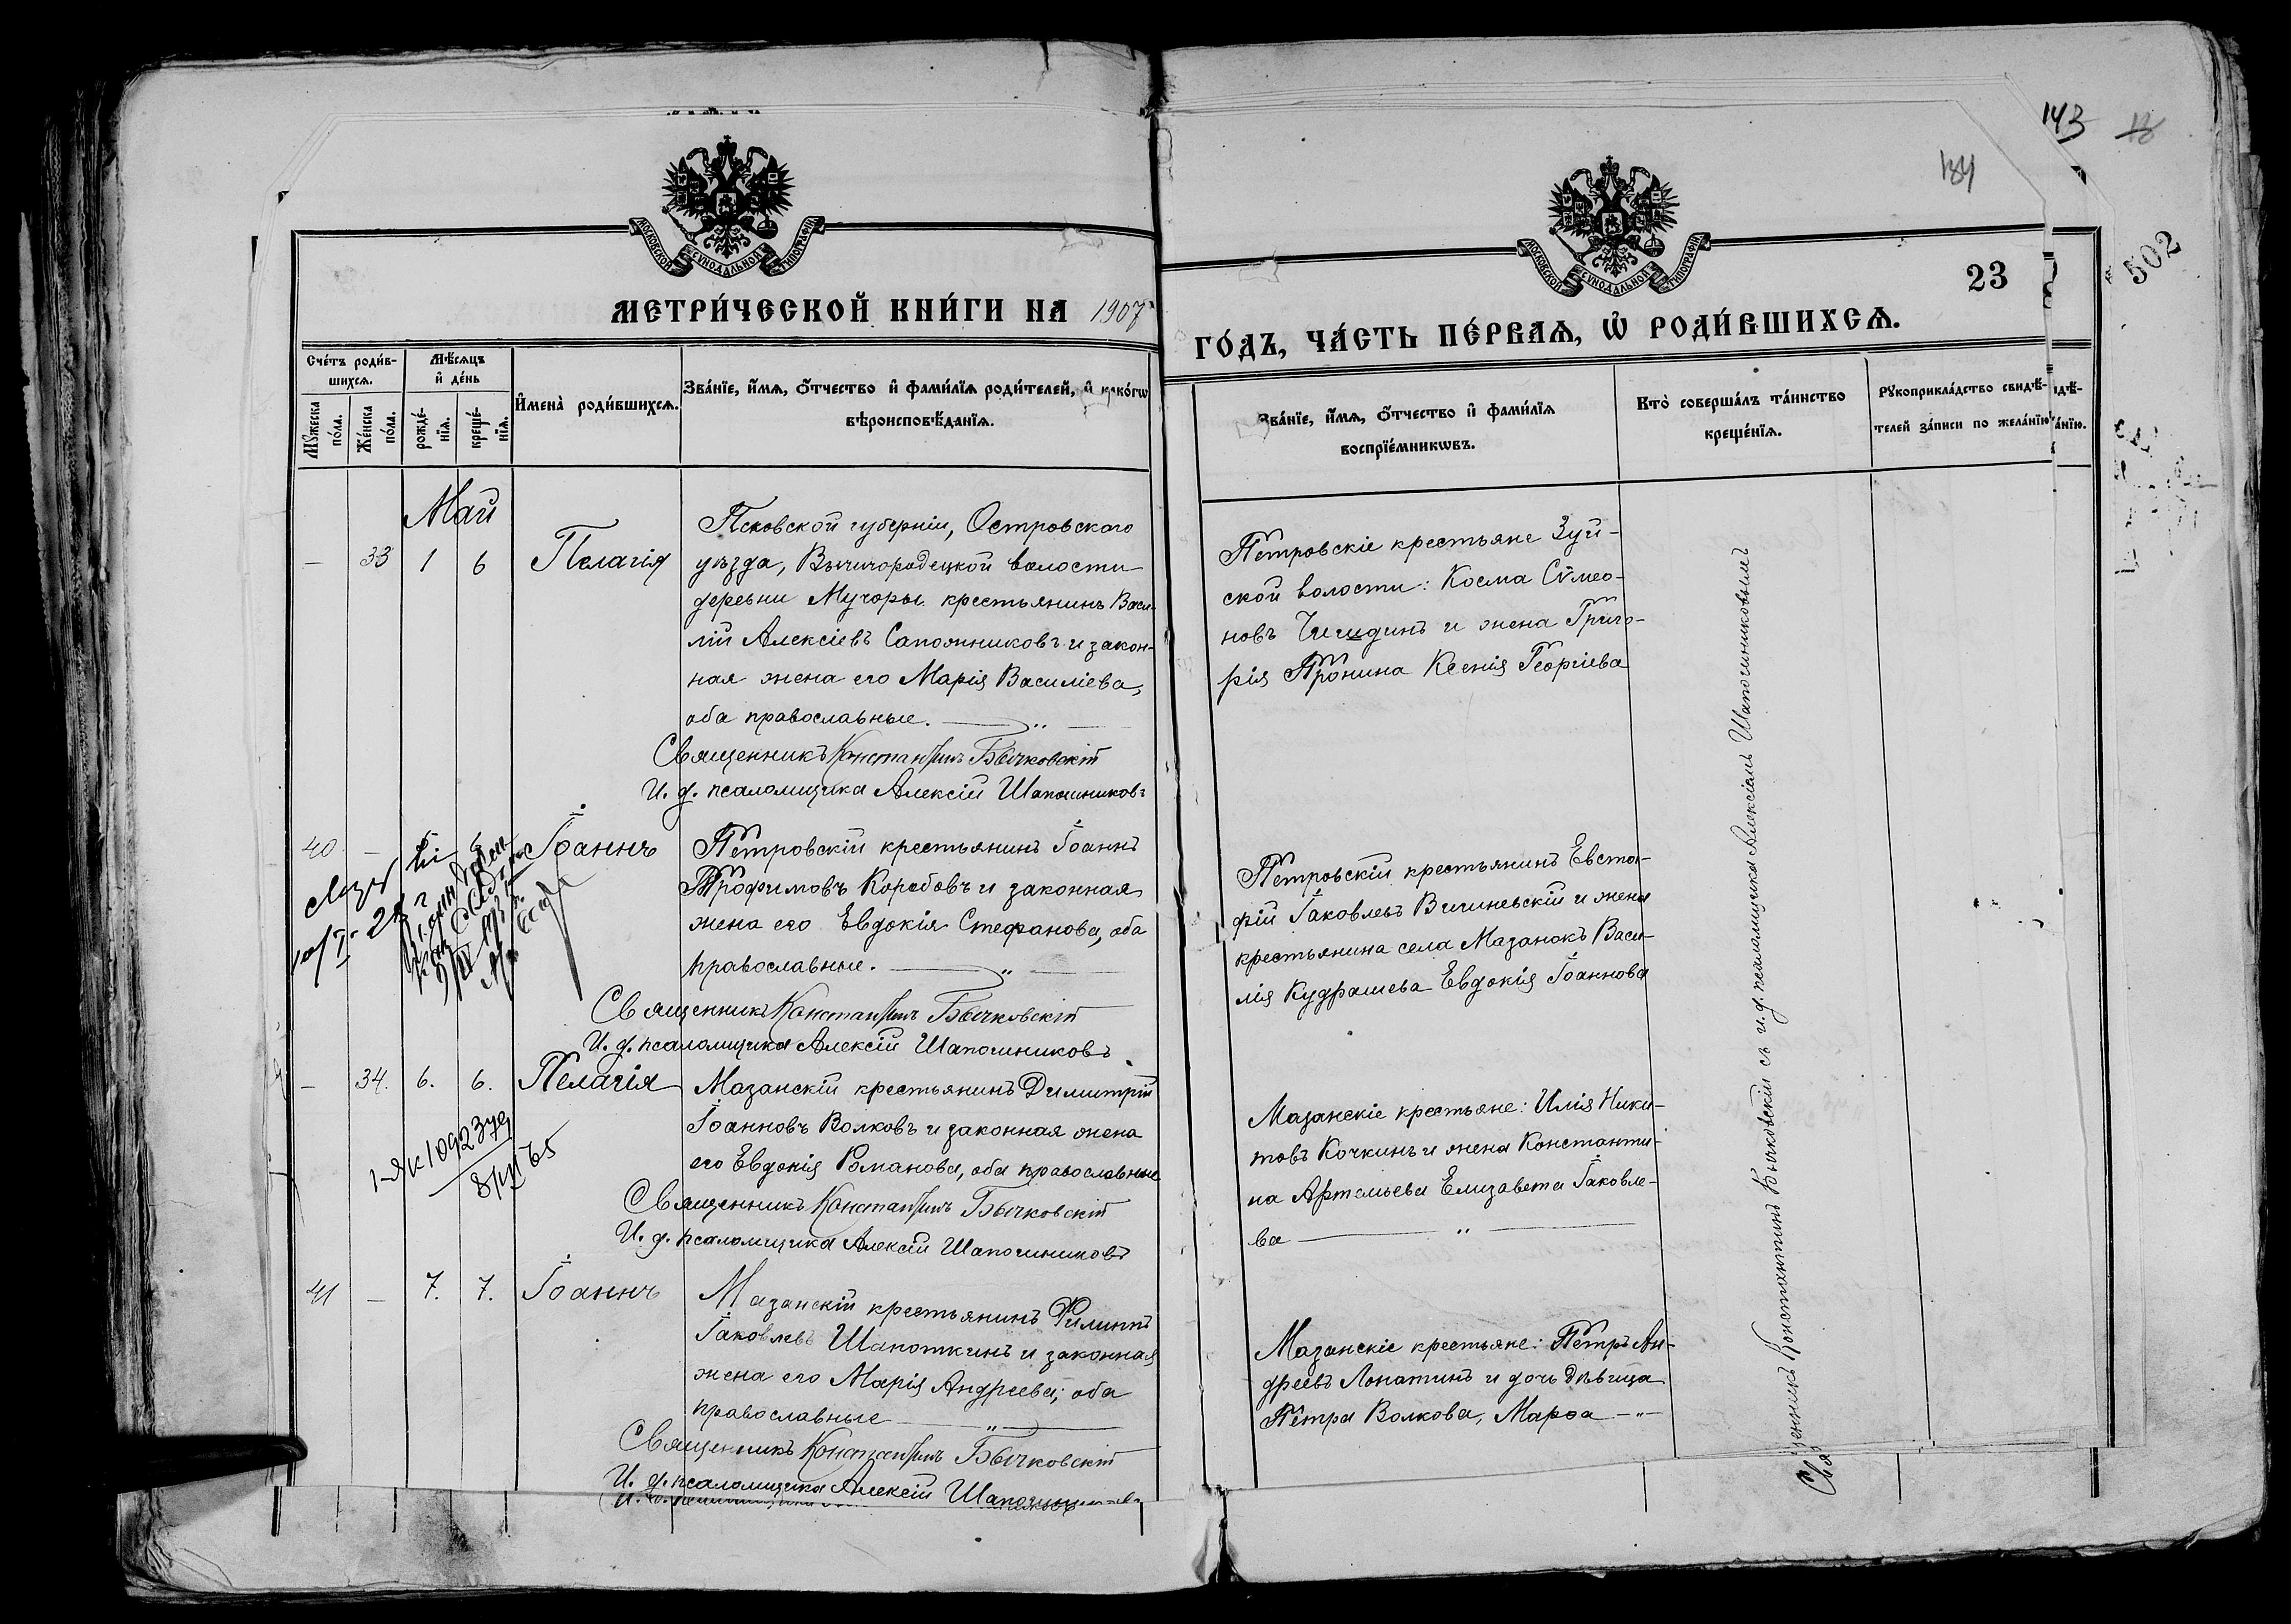 143
18
184
МОСКОВСКОЙ СѴНОДАЛЬНОЙ ТИПОГРАФІИ
МОСКОВСКОЙ СѴНОДАЛЬНОЙ ТИПОГРАФІИ
23
502
МЕТРИ́ЧЕСКОЙ КНИ́ГИ НА 1907
ГО́ДЪ, ЧА́СТЬ ПЕ́РВАѦ, Ѡ҆ РОДИ́ВШИХСѦ.
Сче́тъ роди́в-
шихсѧ.
Мꙋ́жеска
по́ла.
Же́нска
по́ла.
Мѣ́сѧцъ
и҆ де́нь
рожде́-
нїѧ.
креще́-
нїѧ.
И҆мена̀ роди́вшихсѧ.
Зва́нїе, и҆́мѧ, ѻ҆́тчество и҆ фами́лїѧ роди́телей, и҆ како́гѡ
вѣроисповѣ́данїѧ.
Зва́нїе, и҆́мѧ, ѻ҆́тчество и҆ фами́лїѧ
воспрїе́мникѡвъ.
Кто̀ соверша́лъ та́инство
креще́нїѧ.
Рꙋкоприкла́дство свидѣ́-
телей за́писи по жела́нїю
Май
— 33 1 6 Пелагія
Псковской губерніи, Островскаго
уѣзда, Вышгородецкой волости
деревни крестьянинъ Васи-
лій Алексіевъ Сапожниковъ и закон-
ная жена его Марія Василіева,
оба православные. — „ —
Священникъ Константинъ Бычковскій
И. д. псаломщика Алексій Шапошниковъ
Петровскіе крестьяне Зуй-
ской волости: Косма Сѵмео-
новъ и жена Григо-
рія Пронина Ксенія Георгіева
40 — Іоаннъ
Петровскій крестьянинъ Іоаннъ
Трофимовъ Коробовъ и законная
жена его Евдокія Стефанова, оба
православные. — „ —
Священникъ Константинъ Бычковскій
И. д. псаломщика Алексій Шапошниковъ
Петровскій крестьянинъ Евста-
фій Іаковлевъ Вишневскій и жена
крестьянина села Мазанокъ Васи-
лія Кудряшева Евдокія Іоаннова
— 34. 6. 6. Пелагія
Мазанскій крестьянинъ Димитрій
Іоанновъ Волковъ и законная жена
его Евдокія Романова, оба православные
Священникъ Константинъ Бычковскій
И. д. псаломщика Алексій Шапошниковъ
Мазанскіе крестьяне: Илія Ники-
товъ Кочкинъ и жена Константи-
на Артемьева Елизавета Іаковле-
ва — „ —
41 — 7. 7. Іоаннъ
Мазанскій крестьянинъ Филиппъ
Іаковлевъ Шапоткинъ и законная
жена его Марія Андреева, оба
православные — „ —
Священникъ Константинъ Бычковскій
И. д. псаломщика Алексій Шапошниковъ
Мазанскіе крестьяне: Петръ Ан-
дреевъ Лопатинъ и дочь дѣвица
Петра Волкова, Марѳа — „ —
Священникъ Константинъ Бычковскій съ и. д. псаломщика Алексіемъ Шапошниковымъ